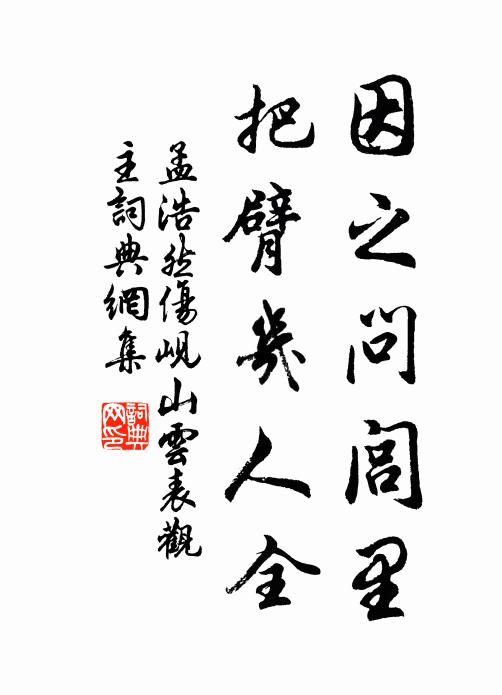 因之問閭里
把臂幾人全
孟浩然傷峴山雲表觀
主詞典網集
詞典
网印